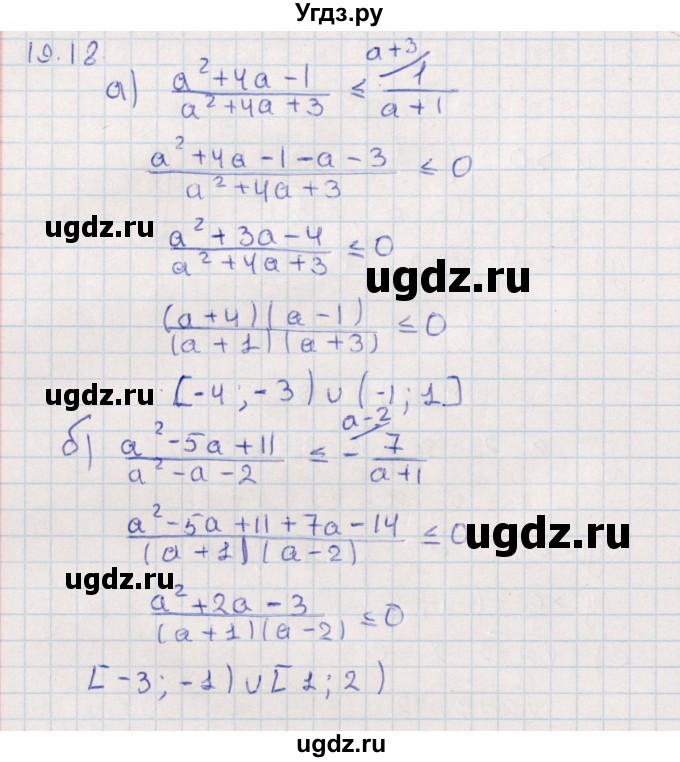 Угдз.ру
19.18
a+3
а) (a²+4a-1)/(a²+4a+3) ≤ 1/(a+1)
(a²+4a-1-a-3)/(a²+4a+3) ≤ 0
ugdz.ru
(a²+3a-4)/(a²+4a+3) ≤ 0
ugdz.ru
((a+4)(a-1))/((a+1)(a+3)) ≤ 0
ugdz.ru
[-4;-3)∪(-1;1]
a-2
б) (a²-5a+11)/(a²-a-2) ≤ -7/(a+1)
(a²-5a+11+7a-14)/((a+1)(a-2)) ≤ 0
ugdz.ru
ugdz.ru
(a²+2a-3)/((a+1)(a-2)) ≤ 0
[-3;-1)∪[1;2)
ugdz.ru